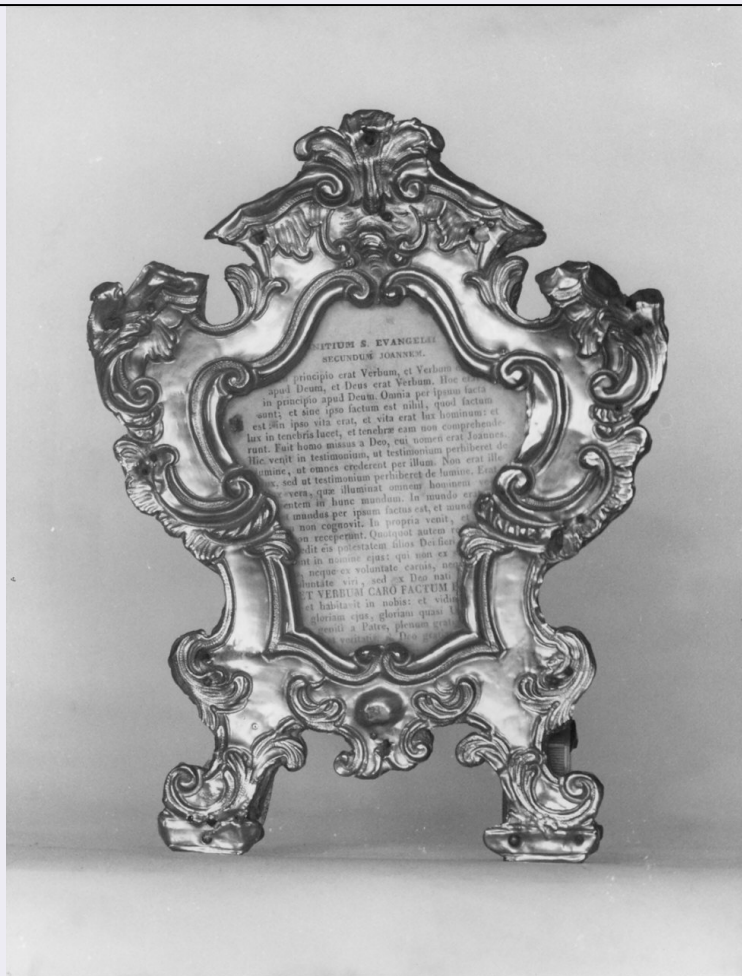 NITIUM S. EVANGELII
SECUNDUM JOANNEM.
principio erat Verbum, et Verbum
apud Deum, et Deus erat Verbum. Hoc
in principio apud Deum. Omnia per ipsum facta
sunt; et sine ipso factum est nihil, quod factum
est; in ipso vita erat, et vita erat lux hominum: et
lux in tenebris lucet, et tenebræ eam non comprehende-
runt. Fuit homo missus a Deo, cui nomen erat Joannes.
Hic venit in testimonium, ut testimonium perhiberet de
lumine, ut omnes crederent per illum. Non erat ille
lux, sed ut testimonium perhiberet de lumine. Erat
vera, quæ illuminat omnem hominem
entem in hunc mundum. In mundo
mundus per ipsum factus est, et mund
non cognovit. In propria venit,
on receperunt. Quotquot autem
edit eis potestatem filios Dei fieri
nt in nomine ejus: qui non ex
neque ex voluntate carnis, ne
luntate viri, sed ex Deo nati
ET VERBUM CARO FACTUM
et habitavit in nobis: et vidim
gloriam ejus, gloriam quasi
geniti a Patre, plenum grat